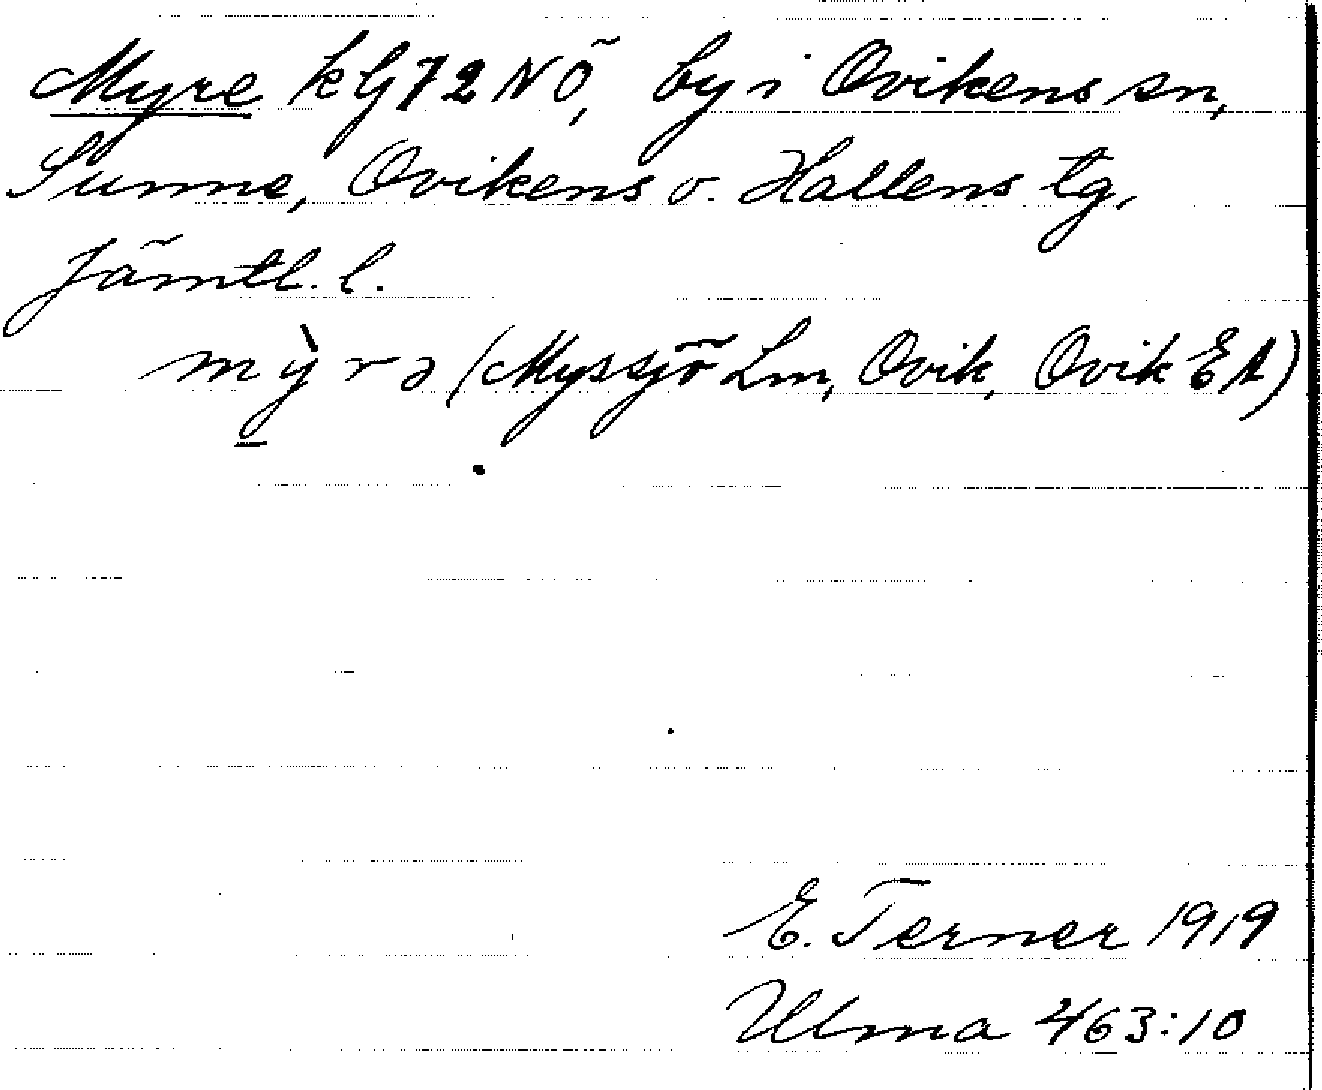 Myre kG72NÖ, by i Ovikens sn,
Sunne, Ovikens o. Hallens tg,
Jämtl. l.
mỳrə (Myssjö Lm, Ovik, Ovik EA)
E. Terner 1919
Ulma 463:10